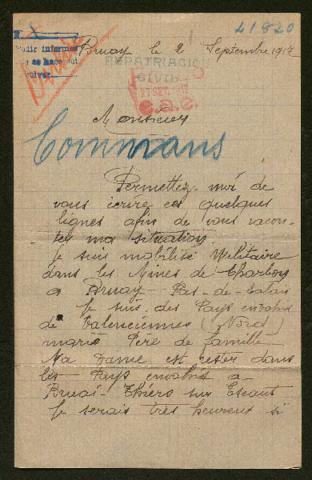 41820
Pedir informes
Bruay le 2 Septembre 1917
REPATRIACION
CIVIL
Monsieur
Commans
Permettez moi de
vous écrire ces quelques
lignes afin de vous racon-
ter ma situation
Je suis mobilisé Militaire
dans les Mines de Charbon
a Bruay Pas-de-Calais
Je suis des Pays envahis
de Valenciennes (Nord)
marié Père de famille
Ma Dame est rester dans
les Pays envahis a
Bruai-Thiers sur Escaut
Je serais très heureux si